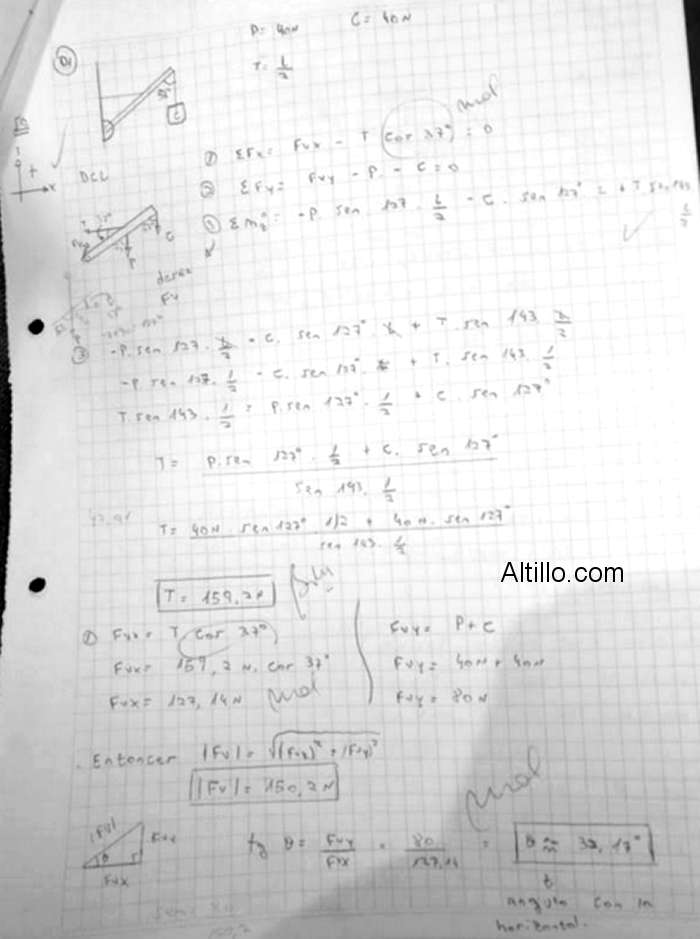 P = 40N C = 40N
D1
T = L/2
53°
C
DCL
+
x
① ΣFx = Fvx - T cos 37° = 0
mal
② ΣFy = Fvy - P - C = 0
③ ΣM = -P. sen 127. L/2 - C. sen 127° L + T. sen 143 L/2
Fv
③ -P. sen 127. L/2 - C. sen 127° L + T. sen 143 L/2
-P. sen 127. 1/2 - C. sen 127° + T. sen 143. 1/2
T. sen 143. 1/2 = P. sen 127°. 1/2 + C. sen 127°
T = P. sen 127°. 1/2 + C. sen 127° / sen 143. 1/2
T = 40N. sen 127°. 1/2 + 40N. sen 127° / sen 143. 1/2
T = 159,2N
Altillo.com
① Fvx = T cos 37°
Fvx = 159,2 N. cos 37°
Fvx = 127,14N
mal
Fvy = P + C
Fvy = 40N + 40N
Fvy = 80N
. Entonces |Fv| = √(Fvx)² + (Fvy)²
|Fv| = 150,2N
mal
|Fv| Fvy
θ
Fvx
tg θ = Fvy/Fvx = 80/127,14 = θ ≈ 32,17°
angulo con la
horizontal.